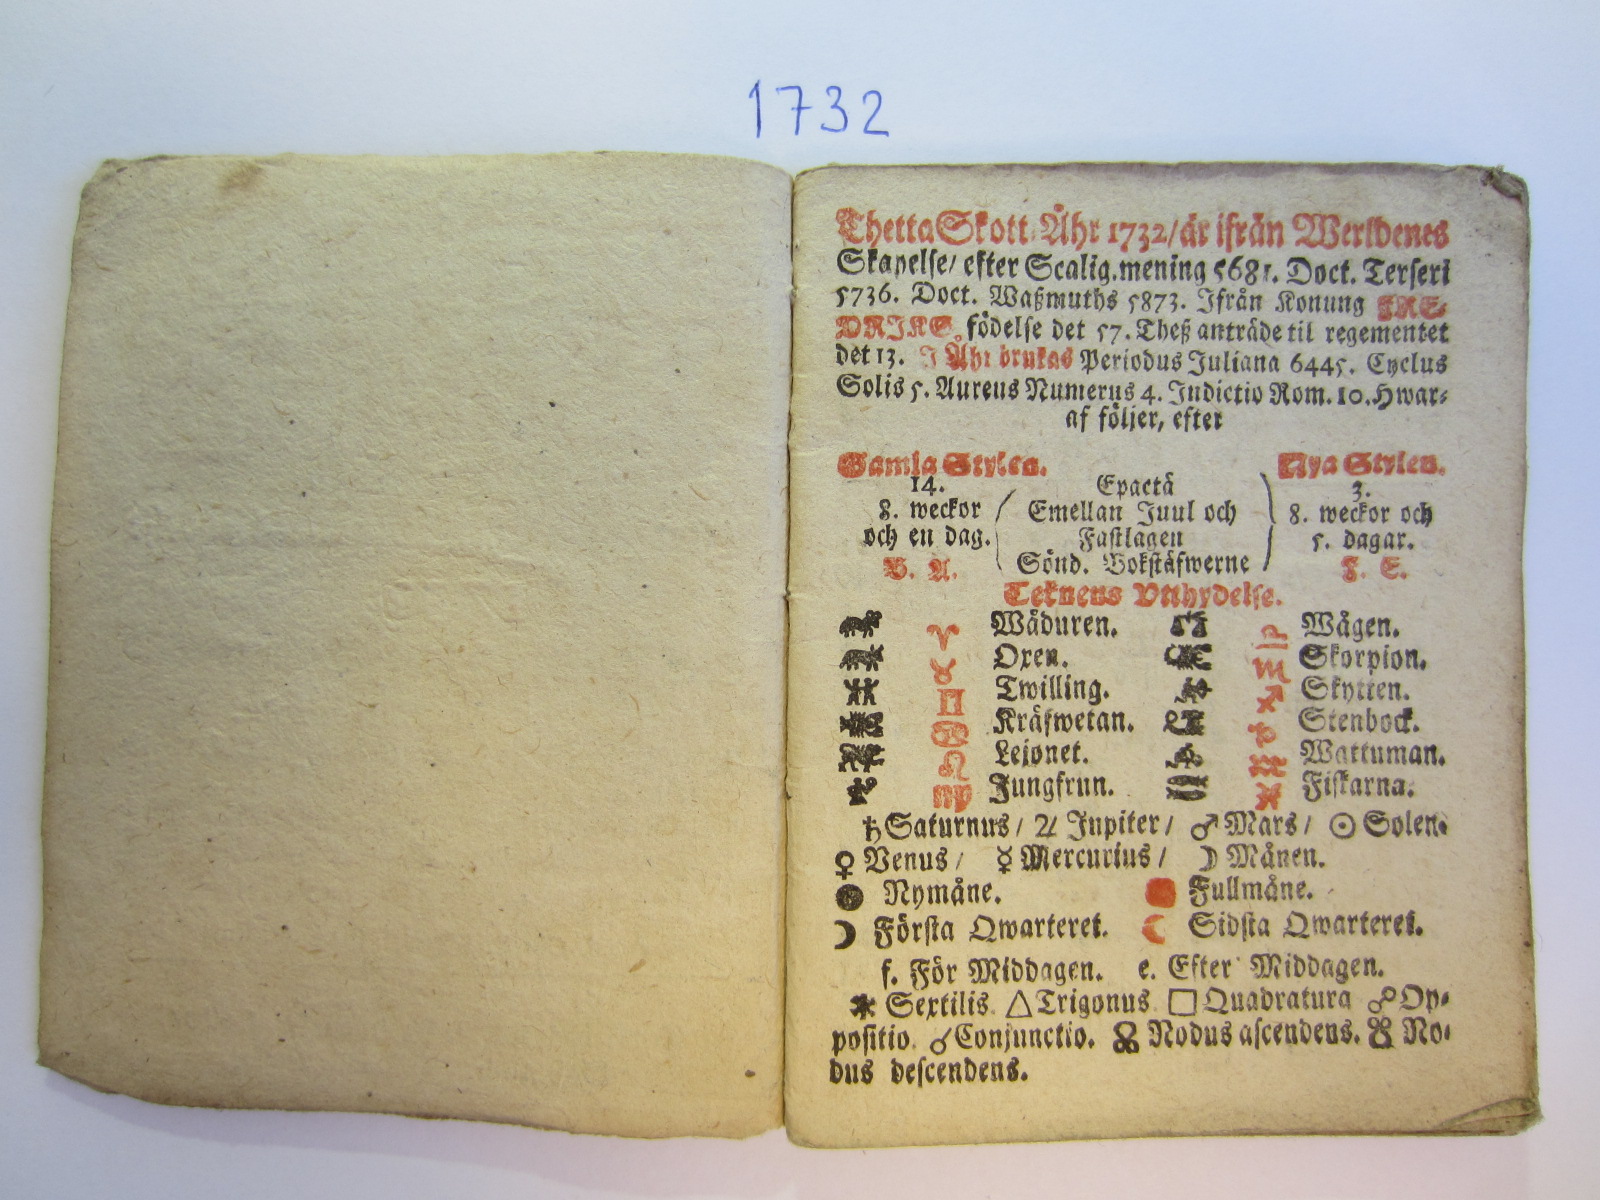 1732
Thetta Skott-Åhr 1732/ är ifrån Werldenes
Skapelse/ efter Scalig. mening 5681. Doct. Terseri
5736. Doct. Waßmuths 5873. Ifrån Konung FRE-
DRIKS födelse det 57. Theß anträde til regementet
det 13. I Åhr brukas Periodus Juliana 6445. Cyclus
Solis 5. Aureus Numerus 4. Indictio Rom. 10. Hwar-
af följer, efter
Gamla Stylen. Nya Stylen.
14. Epactä 3.
8. weckor Emellan Juul och 8. weckor och
och en dag. Fastlagen 5. dagar.
B. A. Sönd. Bokstäfwerne F. E.
Teknens Vttydelse.
♈ Wäduren. ♎ Wågen.
♉ Oxen. ♏ Skorpion.
♊ Twilling. ♐ Skytten.
♋ Kräfwetan. ♑ Stenbock.
♌ Lejonet. ♒ Wattuman.
♍ Jungfrun. ♓ Fiskarna.
♄ Saturnus/ ♃ Jupiter/ ♂ Mars/ ☉ Solen.
♀ Venus/ ☿ Mercurius/ ☽ Månen.
Nymåne. Fullmåne.
Första Qwarteret. Sidsta Qwarteret.
f. För Middagen. e. Efter Middagen.
⚹ Sextilis. △ Trigonus □ Quadratura ☍ Op-
positio. ☌ Conjunctio. ☊ Nodus ascendens. ☋ No-
dus descendens.